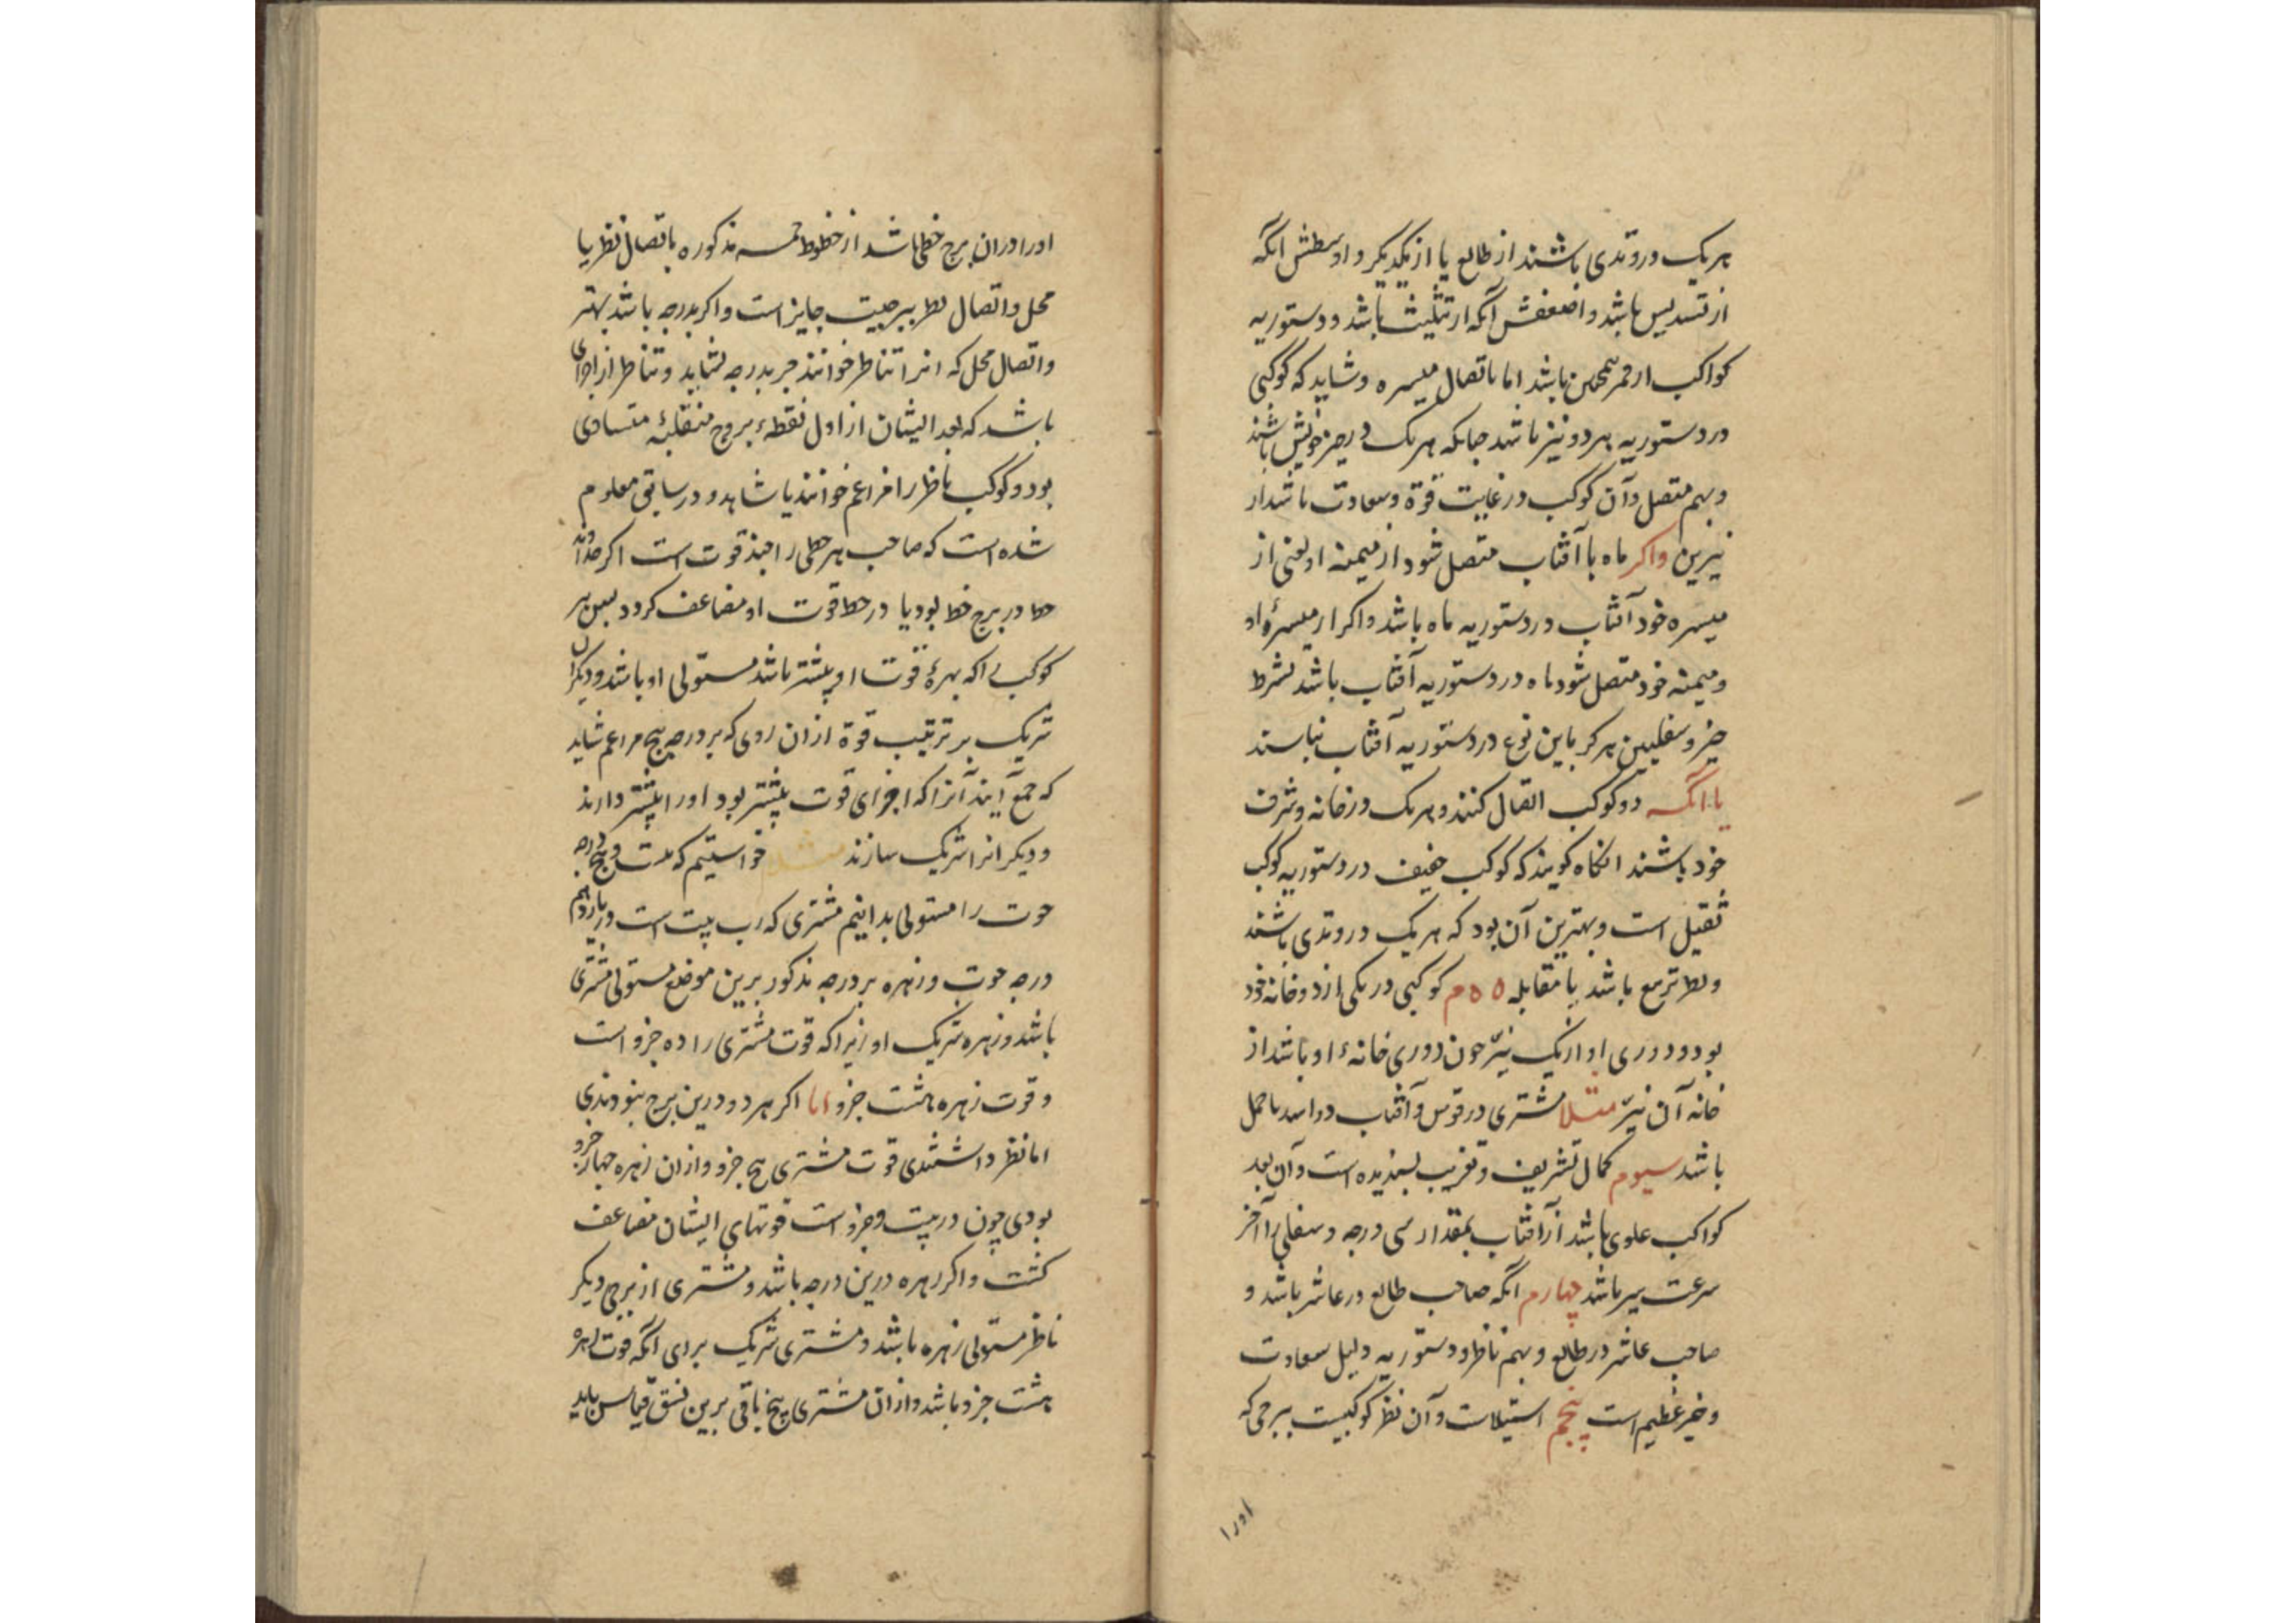 هریک در وتدی باشند از طالع یا از یکدیگر و اوسطش آنکه
از تسدیس باشد و اضعفش آنکه از تثلیث باشد و دستوریه
کواکب از قمر همچنین باشد اما باتصال میسره و شاید که کوکبی
در دستوریه هر دو نیز باشد چنانکه هریک در حیز خویش باشند
و بهم متصل و آن کوکب در غایت قوة و سعادت باشد از
نیرین واکر ماه با آفتاب متصل شود از میمنه او یعنی از
میسره خود آفتاب در دستوریه ماه باشد واکر از میسرهٔ او
و میمنه خود متصل شود ماه در دستوریه آفتاب باشد بشرط
حیز و سفلیین هرکز باین نوع در دستوریه آفتاب نباشند
یا آنکه دو کوکب اتصال کنند و هریک در خانه و شرف
خود باشند انکاه کویند که کوکب خفیف در دستوریه کوکب
ثقیل است و بهترین آن بود که هریک در وتدی باشند
و نظر تربیع باشد یا مقابله دوم کوکبی در یکی از دو خانه خود
بود و دوری او از یک نیّر چون دوری خانهٔ او باشد از
خانه آن نیّر مثلا مشتری در قوس و آفتاب در اسد یا حمل
باشد سیوم کمال تشریف و تغریب پسندیده است و آن بعد
کواکب علوی باشد از آفتاب بمقدار سی درجه و سفلی را آخر
سرعت سیر باشد چهارم آنکه صاحب طالع در عاشر باشد و
صاحب عاشر در طالع و بهم ناظر و دستوریه دلیل سعادت
و خیر عظیم است پنجم استیلاست و آن نظر کوکبیست ببرجی که
اورا
اورا در ان برج خطی باشد از خطوط خمسه مذکوره باتصال نظر یا
محل و اتصال نظر ببرجیت جایز است واکر بدرجه باشد بهتر
و اتصال محل که انرا تناظر خوانند جز بدرجه نشاید و تناظر از اجزای
باشد که بعد ایشان از اول نقطهٔ بروج منقلبهٔ متساوی
بود و کوکب ناظر را مزاعم خوانند یا شاهد و در سابق معلوم
شده است که صاحب هر حظی را چند قوت است اکر خداوند
حظ در برج خط بود یا در حظ قوت او مضاعف کردد پس هر
کوکب را که بهرهٔ قوت او بیشتر باشد مستولی او باشد و دیکران
شریک بر ترتیب قوة از ان روی که بر درجه پنج مزاعم شاید
که جمع آیند آنرا که اجزای قوت بیشتر بود اورا بیشتر دارند
و دیکر انرا شریک سازند مثلا خواستیم که بیست و پنج درجه
حوت را مستولی بدانیم مشتری که رب بیت است در یازدهم
درجه حوت و زهره بر درجه مذکور برین موضع مستولی مشتری
باشد و زهره شریک او زیرا که قوت مشتری را ده جزو است
و قوت زهره هشت جزو اما اکر هر دو درین برج نبودندی
اما نظر داشتندی قوت مشتری پنج جزو و از ان زهره چهار جزو
بودی چون در بیت و جزو است قوتهای ایشان مضاعف
کشت واکر زهره درین درجه باشد و مشتری از برجی دیکر
ناظر مستولی زهره باشد و مشتری شریک برای آنکه قوت زهره
هشت جزو باشد و از ان مشتری پنج باقی برین نسق قیاس باید